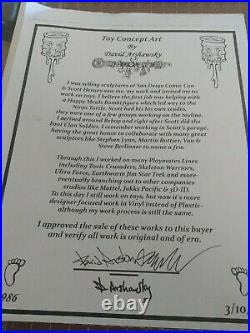 Toy Concept Art
By
David Arshawsky
I was selling sculptures at San Diego Comic Con
& Scott Hensey saw me, my work and invited me to
work on toys. I believe the first job was helping with
a Happy Meals Bambi figure which led way to the
Ninja Turtle. Scott had his own studio,
they were one of a few groups working on the toyline.
I arrived around Bebop and right after Scott did the
Foot Clan Soldier. I remember working in Scott's garage,
having the great honor to collaborate with many great
sculptors like Stephen Lynn, Martin Van
& Steve Berliman to name a few.
Through this I worked on many Playmates Lines
including Toxic Crusaders, Skeleton Warriors,
Ultra Force, Earthworm Jim Star Trek and more-
eventually branching out to other companies
studios like Mattel, Jakks Pacific & 3D-ID.
To this day I still work on toys, but now it's more
designer focused work in Vinyl instead of Plastic-
although my work process is still the same.
I approved the sale of these works to this buyer
and verify all work is original and of era.
D Arshawsky
1986
3/10